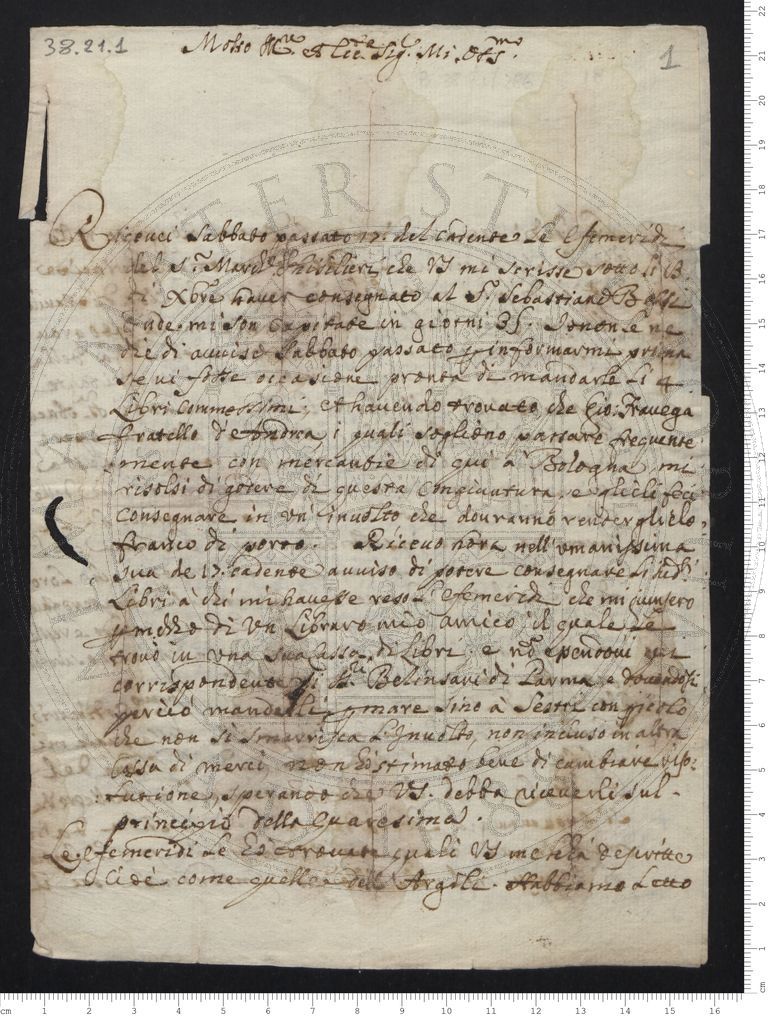 38.21.1
1
Molto Ill.re et Ecc.te Sig.r Mi. Oss.mo
Riceuei Sabbato passato 17. del cadente le Efemeridi
del S.r March.e Ghisilieri che VS mi scrisse sotto li 13.
di Xbre hauer consegnato al S.r Sebastiano
onde mi son capitate in giorni 35. Jo non le ne
diedi auuiso Sabbato passato p informarmi prima
se ui fosse occasione pronta di mandarle li 4
Libri Commessimi, et hauendo trouato che Gio. Trauega
fratello di Andrea, i quali sogliono passare frequente
mente con mercantie di qui à Bologna, mi
risolsi di godere di questa congiuntura, e glieli feci
consegnare in un inuolto che douranno renderglielo
franco di porto. Riceuo hora nell'umanissima
sua de 17. cadente auuiso di potere consegnare li sud.i
Libri à chi mi hauesse reso l'Efemeridi che mi giunsero
p mezzo di un Libraro mio amico il quale le
trouò in una sua cassa di Libri. e nõ essendoui qui
corrispondente di Belinsari di Parma, e douendosi
perciò mandarli p mare sino à Sestri con pericolo
che non si smarrisca l'Inuolto, non incluso in altra
cassa di merci, non hò stimato bene di cambiare riso-
lutione, sperando che VS. debba riceuerli sul
principio della Quaresima.
Le Efemeridi le hò trouate quali VS me l'hà descritte
cioè come quelle dell'Argoli. Habbiamo Letto